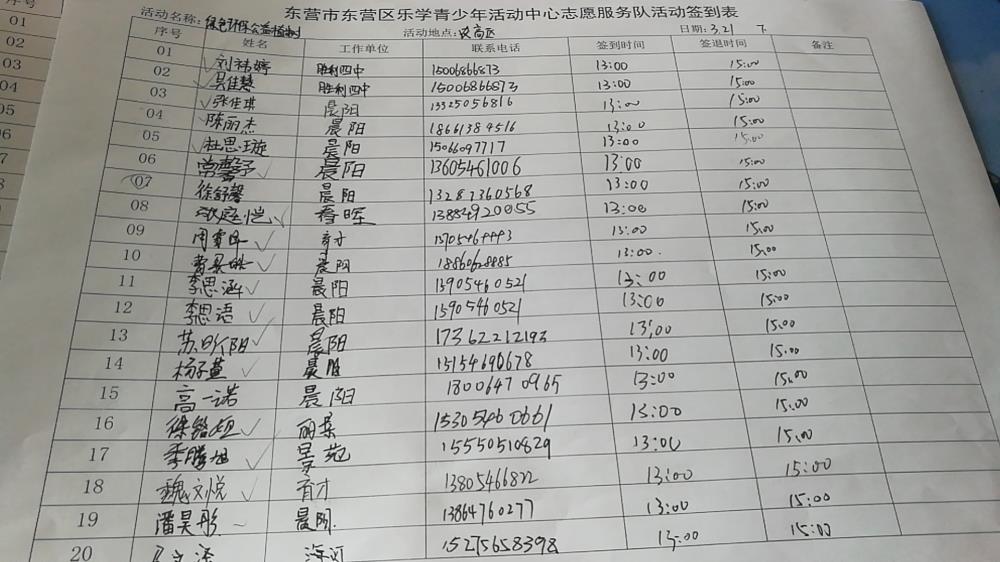 东营市东营区乐学青少年活动中心志愿服务队活动签到表
活动名称: 绿色环保公益植树 活动地点: 文高区 日期: 3.21 下
序号 姓名 工作单位 联系电话 签到时间 签退时间 备注
01 刘祎婷 胜利四中 15006866873 13:00 15:00
02 吴佳慧 胜利四中 15006866873 13:00 15:00
03 张佳琪 晨阳 13325056816 13:00 15:00
04 陈丽杰 晨阳 18661389516 13:00 15:00
05 杜思璇 晨阳 15066097717 13:00 15:00
06 常馨予 晨阳 13605461006 13:00 15:00
07 徐舒馨 晨阳 13282360568 13:00 15:00
08 庭恺 春晖 13884920055 13:00 15:00
09 育才 13:00 15:00
10 晨阳 13:00 15:00
11 李思涵 晨阳 13905460521 13:00 15:00
12 李思语 晨阳 15905460521 13:00 15:00
13 苏昕阳 晨阳 17362212193 13:00 15:00
14 杨子萱 15154690678 13:00 15:00
15 高一诺 晨阳 18006470965 13:00 15:00
16 徐铭 丽景 15305460661 13:00 15:00
17 季腾旭 景苑 15550510829 13:00 15:00
18 魏刘悦 育才 13805466822 13:00 15:00
19 潘昊彤 晨阳 13864760277 13:00 15:00
20 海河 15275658398 13:00 15:00
序号
01
02
03
04
05
06